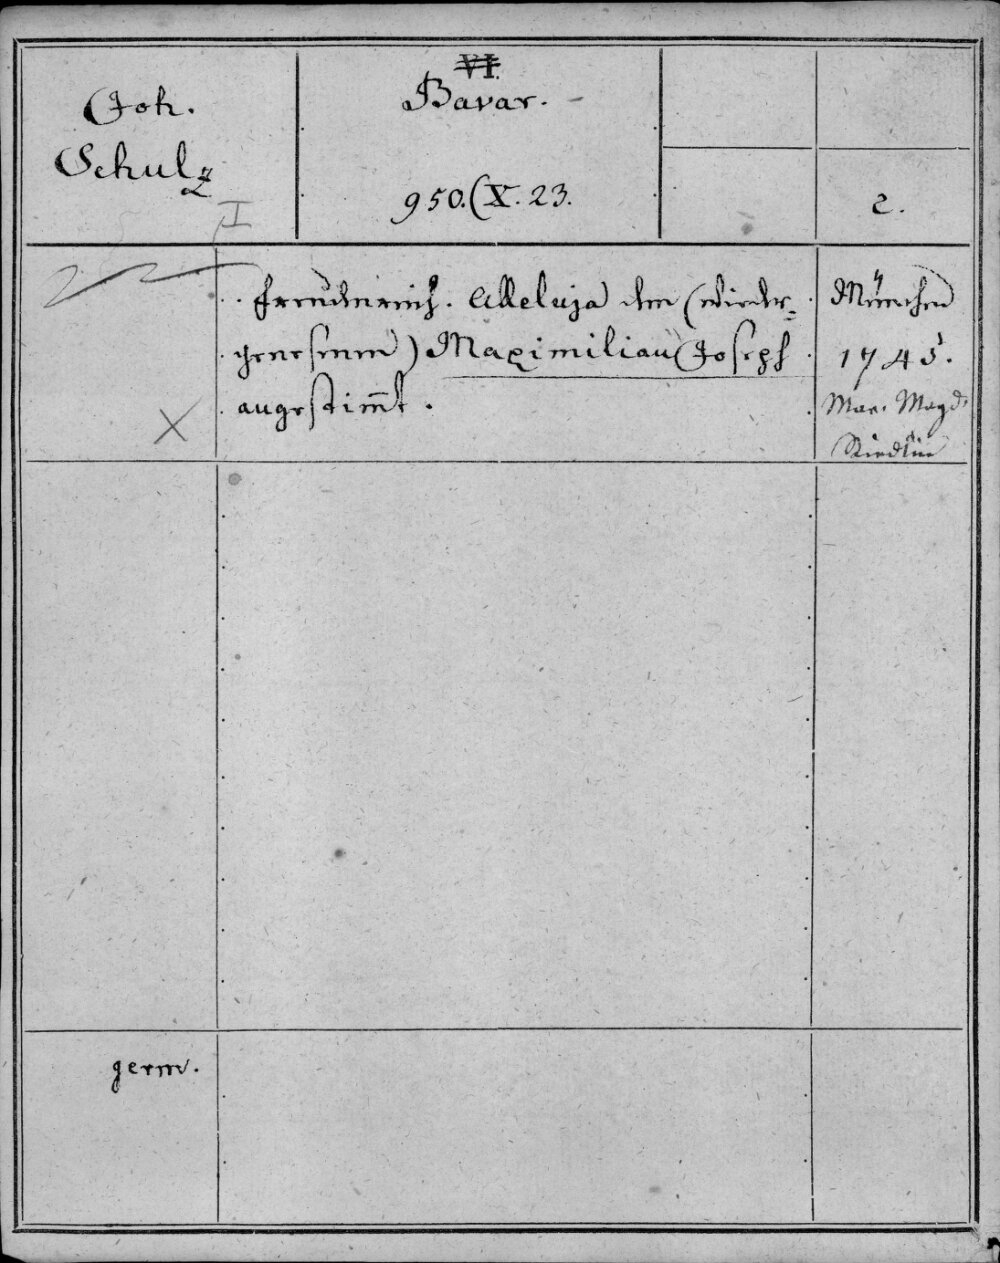 Joh.
Schulz
I
VI.
Bavar. -
950.(X. 23.
2.
Freudenreich. Alleluja dem (wieder=
genesenen) Maximilian Joseph
angestim̄t.
München
1745.
Mar. Magd.
Riedlin
X
germ.